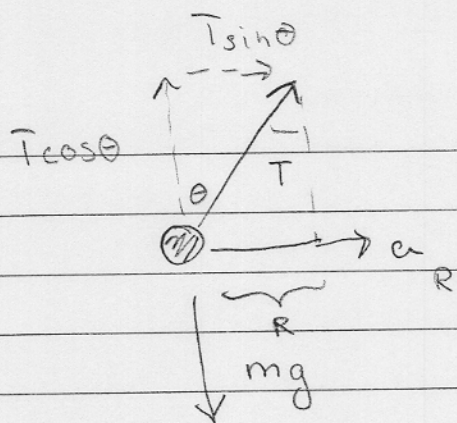 Tsinθ
Tcosθ
θ
T
m
a
R
R
mg